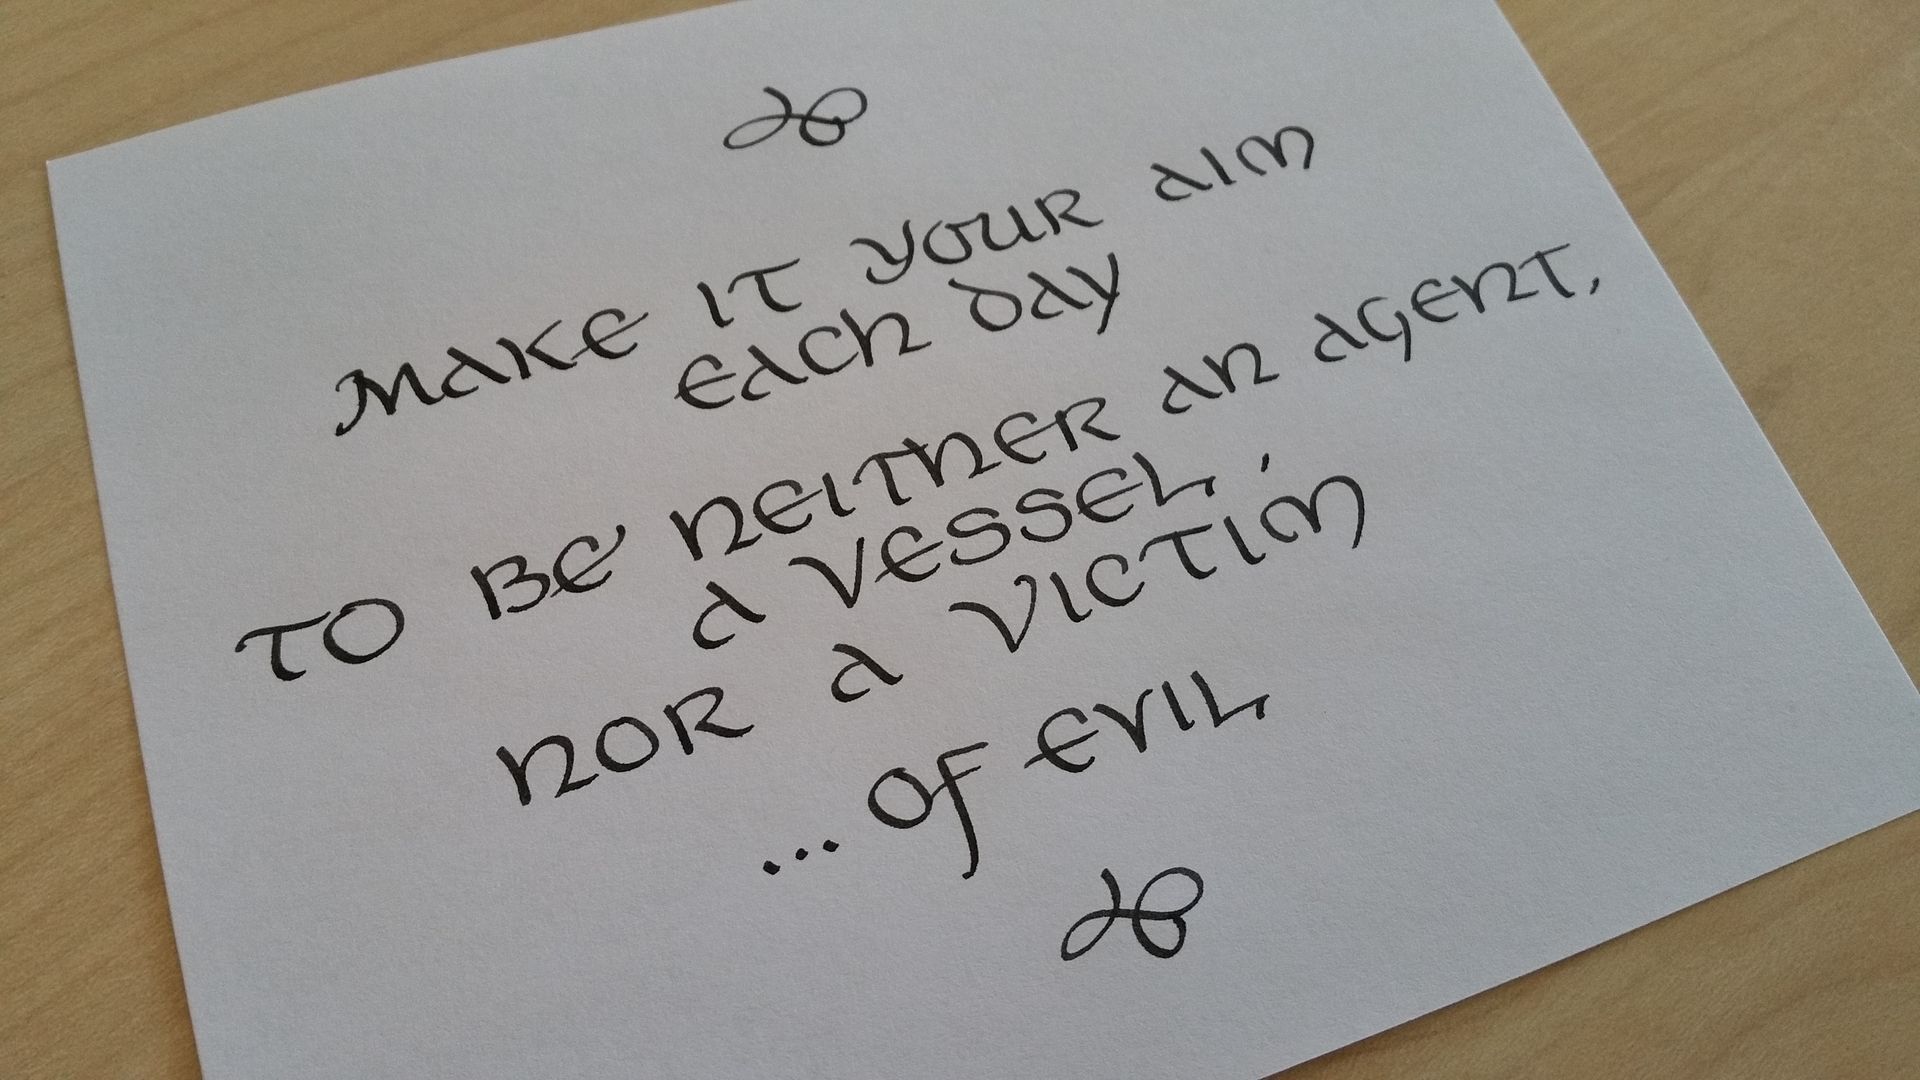 MAKE IT YOUR AIM
EACH DAY
TO BE NEITHER AN AGENT,
A VESSEL,
NOR A VICTIM
...OF EVIL